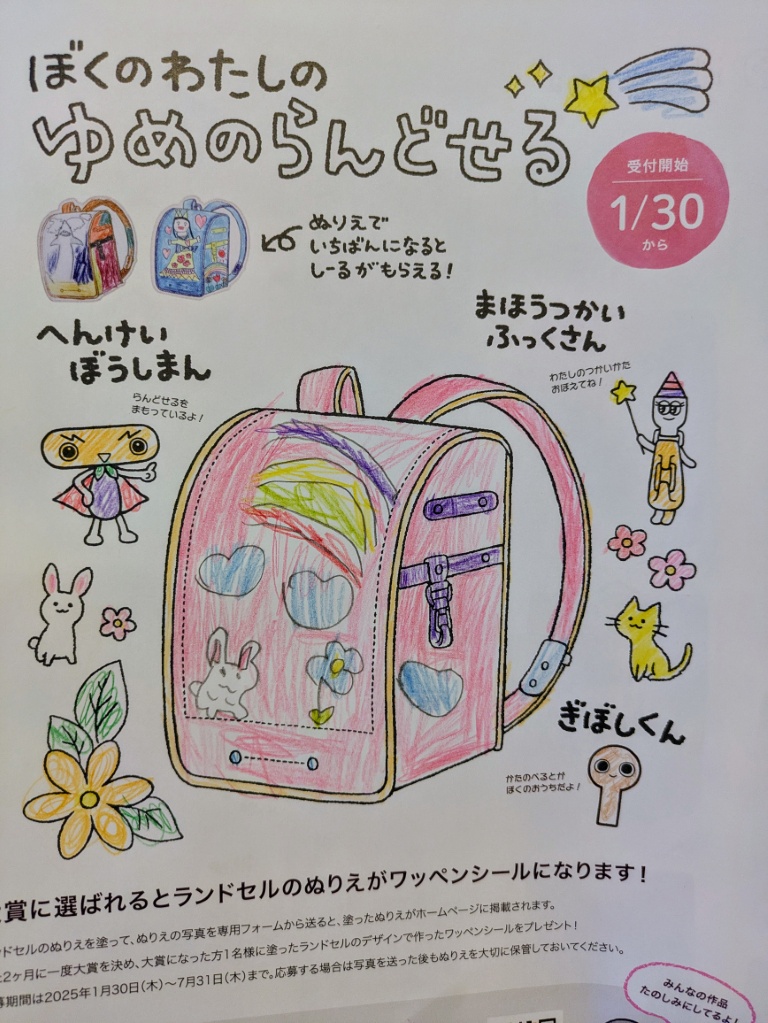 ぼくのわたしの
ゆめのらんどせる
受付開始
1/30
から
ぬりえで
いちばんになると
しーるがもらえる!
へんけい
ぼうしまん
らんどせるを
まもっているよ!
まほうつかい
ふっくさん
わたしのつかいかた
おぼえてね!
ぎぼしくん
かたのべるとが
ぼくのおうちだよ!
賞に選ばれるとランドセルのぬりえがワッペンシールになります!
ドセルのぬりえを塗って、ぬりえの写真を専用フォームから送ると、塗ったぬりえがホームページに掲載されます。
2ヶ月に一度大賞を決め、大賞になった方1名様に塗ったランドセルのデザインで作ったワッペンシールをプレゼント!
募期間は2025年1月30日(木)〜7月31日(木)まで。応募する場合は写真を送った後もぬりえを大切に保管しておいてください。
みんなの作品
たのしみにしてるよ!